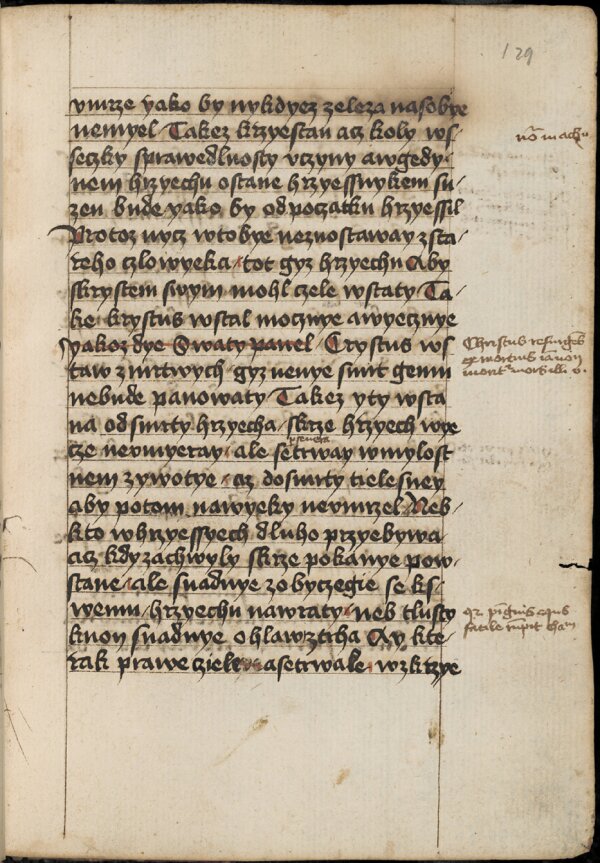 129
vmrze yako by nykdyez zeleza nasobye
nemyel Takez krzyestan acz koly ws-
seczky sprawedlnosty vczyny awgedy-
nem hrzyechu ostane hrzyessnykem su-
zen bude yako by od poczatku hrzyessil
Protoz nycz wtobye neznostaway zsta-
reho czlowyeka tot gyz hrzyechu Aby
skrystem swym mohl czele wstaty Ta-
ke krystus wstal mocznye awyecznye
yakoz dye Swaty pawel Crystus ws
taw zmrtwych gyz nenye smrt gemu
nebude panowaty Takez y ty wsta
na od smrty hrzyecha skrze hrzyech wye
cze nevmyeray ale setrway wmylost
nem zywotye az do smrty tielesney
aby potom nawyeky nevmrzel Neb
kto whrzyessyech dluho przyebywa
acz kdy zachwyly skrze pokanye pow-
stane ale snadnye zobyczegie se ks-
wemu hrzyechu nawraty neb tlusty
knon snadnye ohlaw ztrha Ay kte-
rak prawe cziele asetrwale wzkrzye
Christus resurgens
ex mortuis iam non